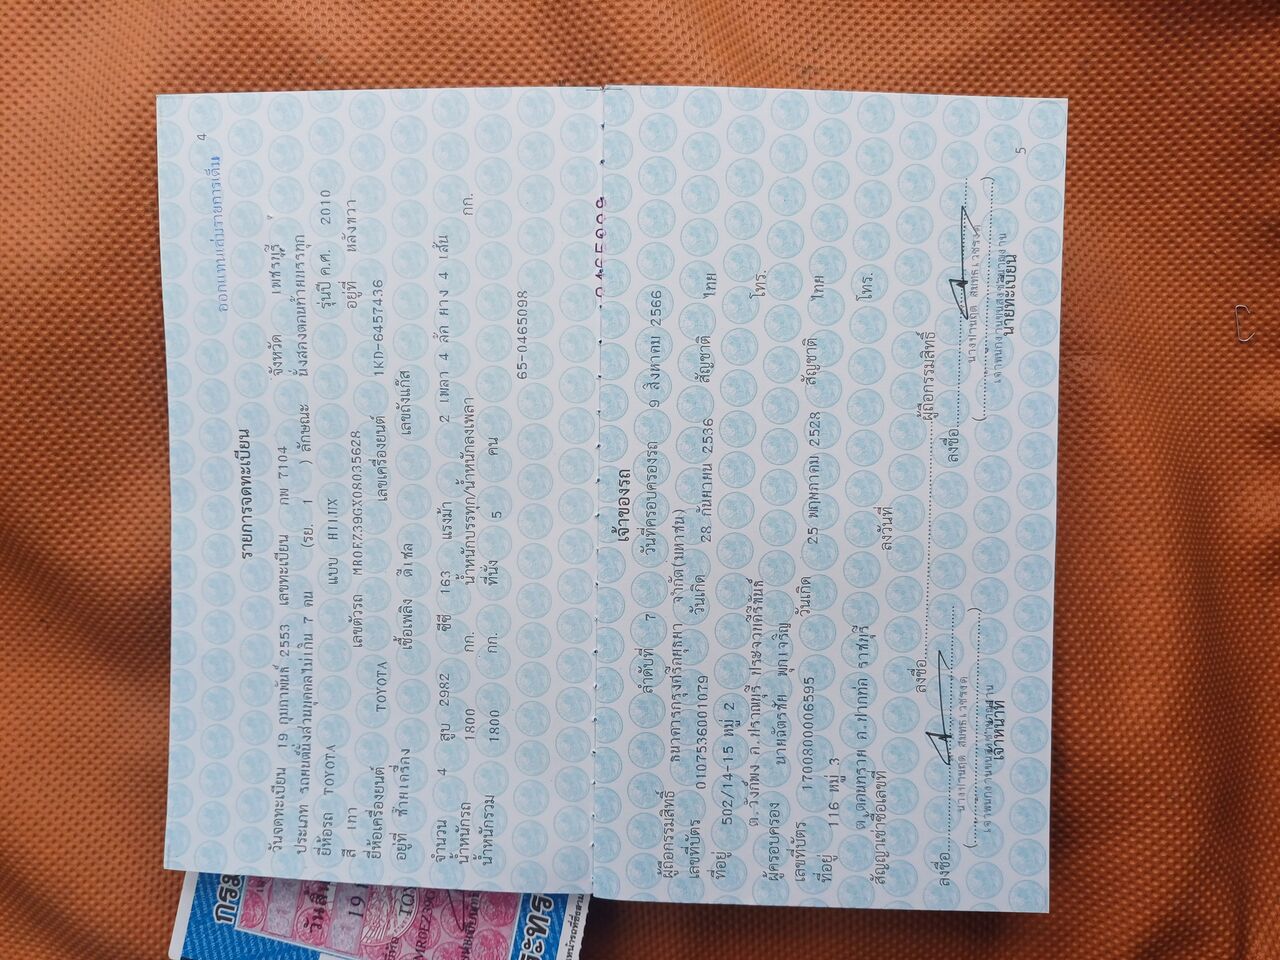 ออกแทนเล่มรายการเต็ม
4
รายการจดทะเบียน
วันจดทะเบียน 19 กุมภาพันธ์ 2553 เลขทะเบียน กพ 7104 จังหวัด เพชรบุรี
ประเภท รถยนต์นั่งส่วนบุคคลไม่เกิน 7 คน (รย. 1 ) ลักษณะ นั่งสองตอนท้ายบรรทุก
ยี่ห้อรถ TOYOTA แบบ HILUX รุ่นปี ค.ศ. 2010
สี เทา เลขตัวรถ MR0FZ39GX08035628 อยู่ที่ หลังขวา
ยี่ห้อเครื่องยนต์ TOYOTA เลขเครื่องยนต์ 1KD-6457436
อยู่ที่ ซ้ายเครื่อง เชื้อเพลิง ดีเซล เลขถังแก๊ส
จำนวน 4 สูบ 2982 ซีซี 163 แรงม้า 2 เพลา 4 ล้อ ยาง 4 เส้น
น้ำหนักรถ 1800 กก. น้ำหนักบรรทุก/น้ำหนักลงเพลา กก.
น้ำหนักรวม 1800 กก. ที่นั่ง 5 คน
65-0465098
เจ้าของรถ
ลำดับที่ 7 วันที่ครอบครองรถ 9 สิงหาคม 2566
ผู้ถือกรรมสิทธิ์ ธนาคารกรุงศรีอยุธยา จำกัด(มหาชน)
เลขที่บัตร 0107536001079 วันเกิด 28 กันยายน 2536 สัญชาติ ไทย
ที่อยู่ 502/14-15 หมู่ 2
ต.วังก์พง อ.ปราณบุรี ประจวบคีรีขันธ์ โทร.
ผู้ครอบครอง นายฉัตรชัย พุกเจริญ
เลขที่บัตร 1700800006595 วันเกิด 25 พฤษภาคม 2528 สัญชาติ ไทย
ที่อยู่ 116 หมู่ 3
ต.ดอนทราย อ.ปากท่อ ราชบุรี โทร.
สัญญาเช่าซื้อเลขที่ ลงวันที่
ลงชื่อ ผู้ถือกรรมสิทธิ์
ลงชื่อ ลงชื่อ
เจ้าหน้าที่ นายทะเบียน
5